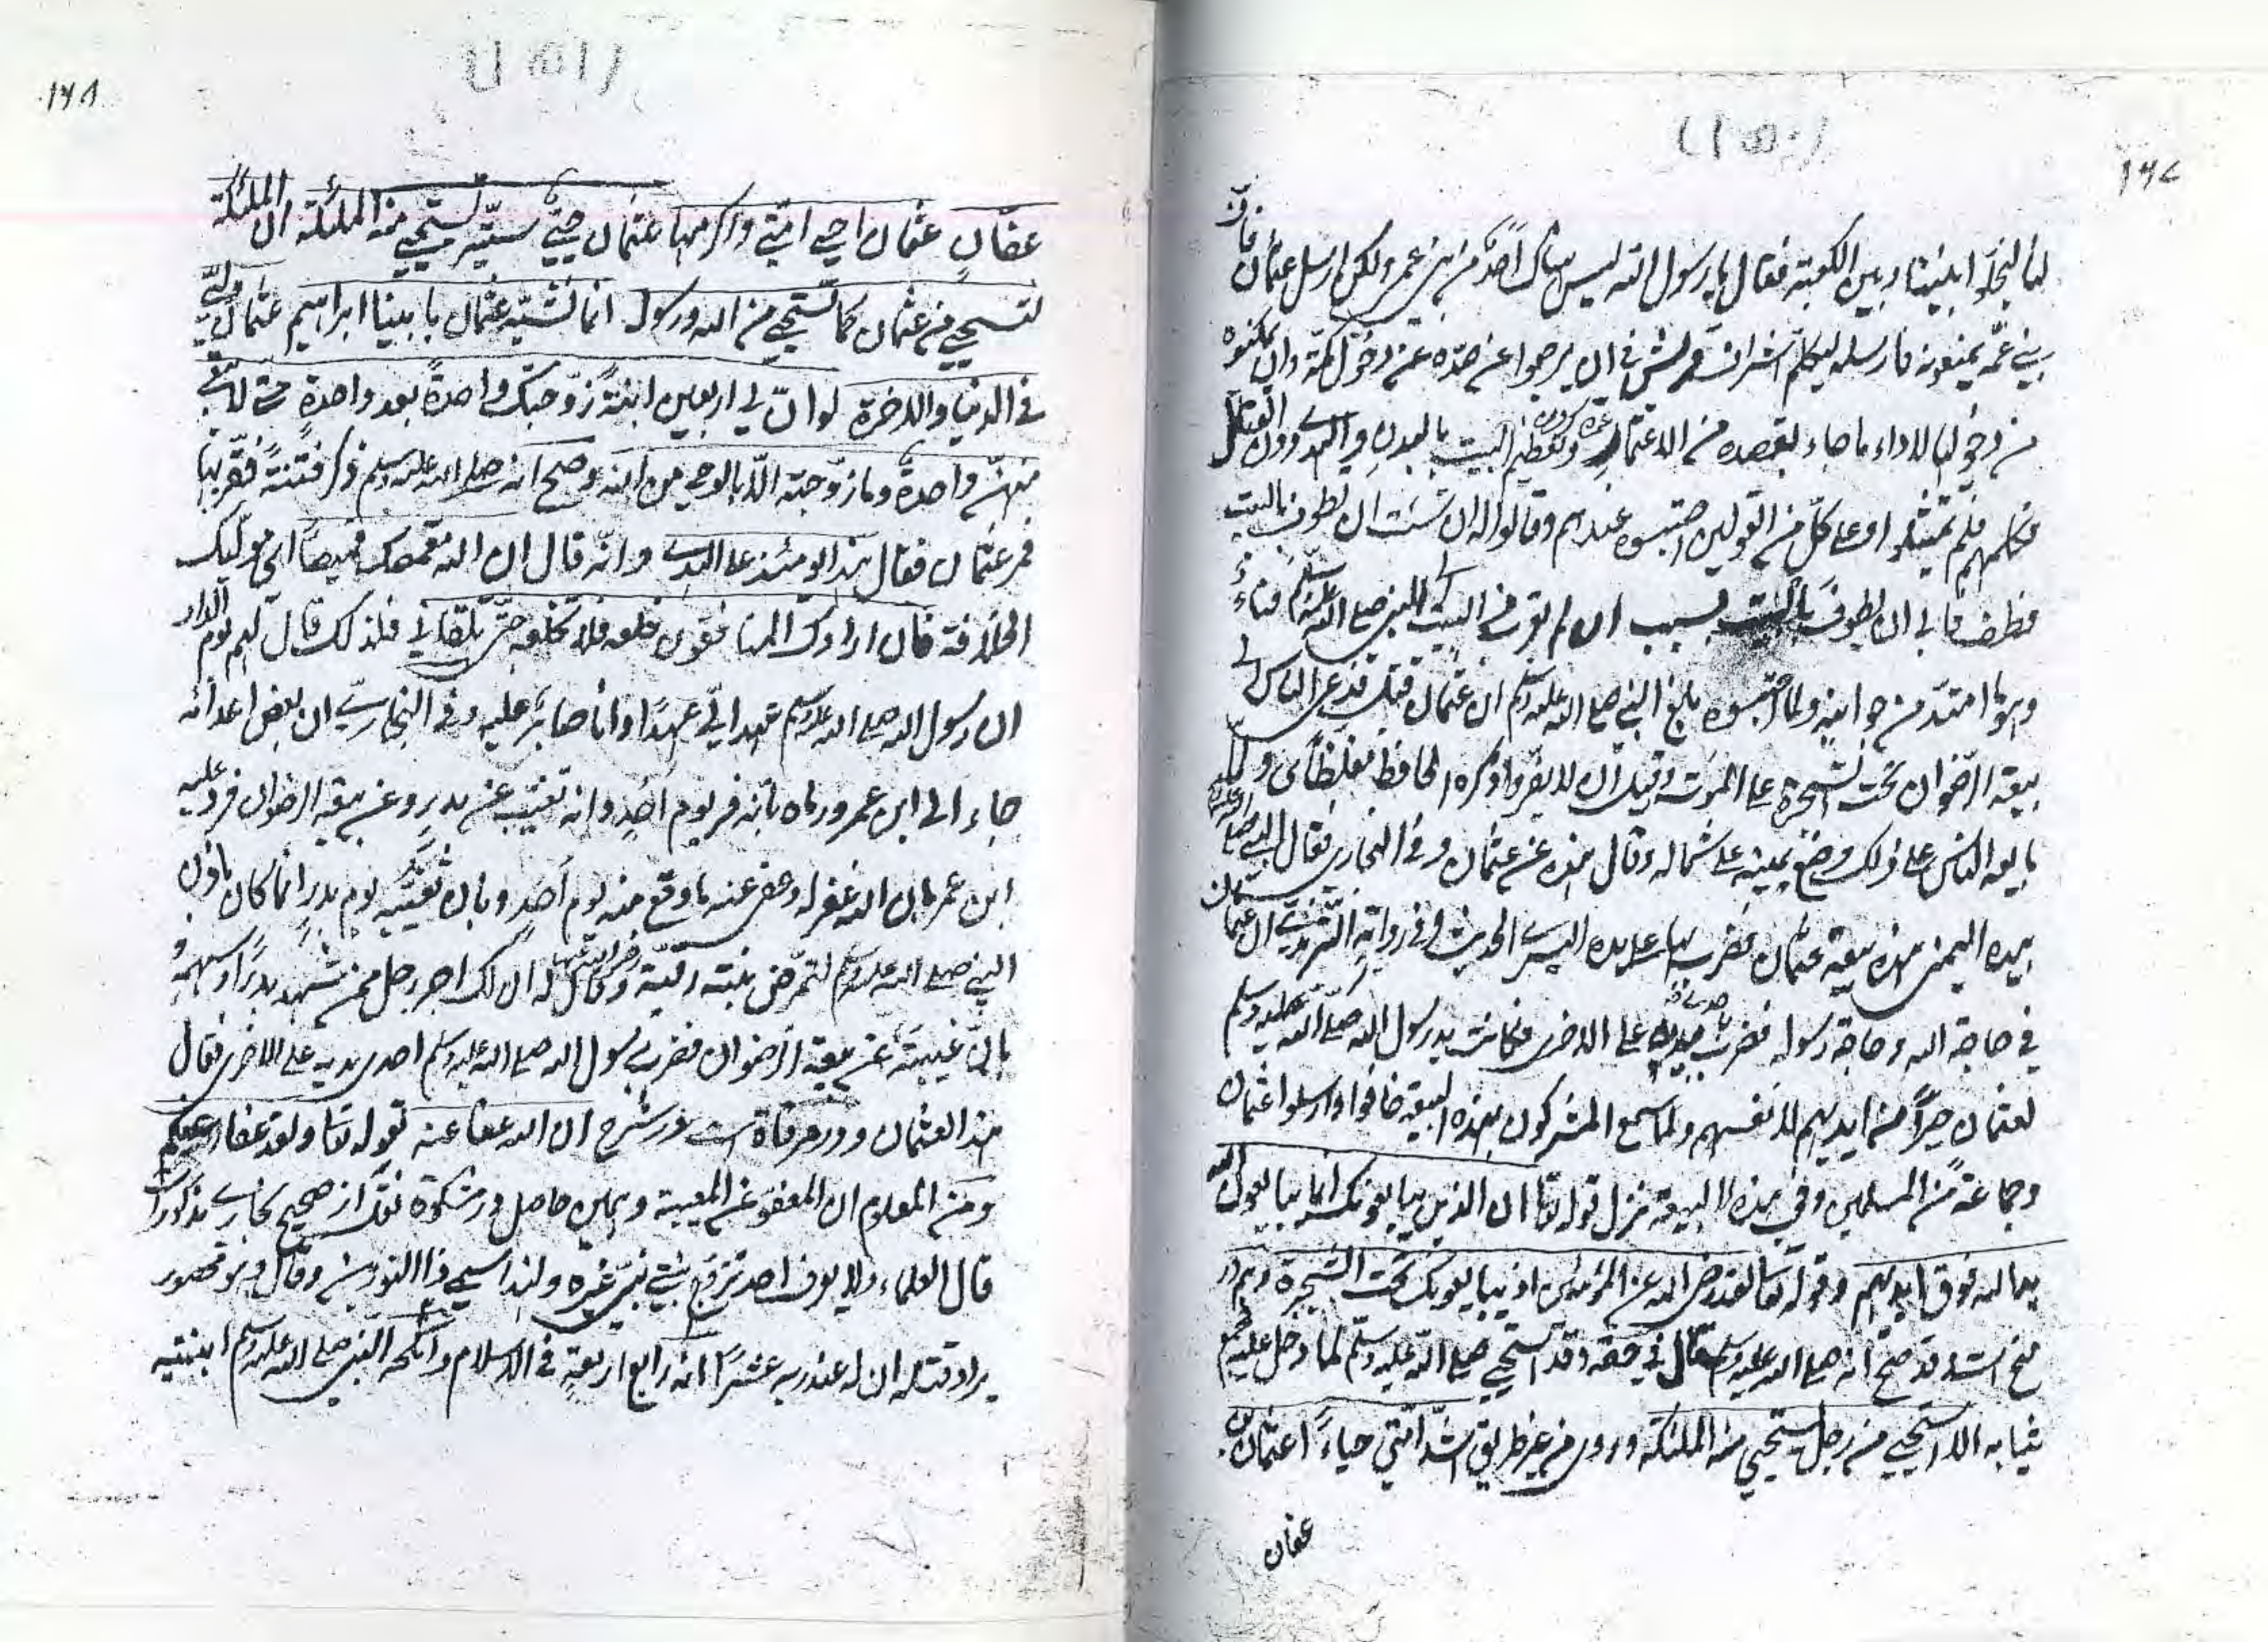 ١٦٧
لنا ليخلوا بيننا وبين الكعبة فقال يا رسول الله ليس هناك احد من بني عمي ولكن ارسل عثمان فان
بني عمه يمنعونه فارسله ليكلم اشراف قريش في ان يرجعوا عن صده عن دخول مكة وان يمكنوه
من دخولها لاداء ما جاء بقصده من الاعتمار وتعظيم البيت بالبدن والهدي دون القتال
فكلمهم فلم يمتثلوا وعلى كل من القولين احتبسوه عندهم وقالوا له ان شئت ان تطوف بالبيت
فطف فابى ان يطوف بسبب ان لم يؤمن البيت للنبي صلى الله عليه وسلم
وهو امتد من جوابه ولما احتبسوه بلغ النبي صلى الله عليه وسلم ان عثمان قتل فدعى الناس الى
بيعة الرضوان تحت الشجرة على الموت وقيل ان لا يفروا وذكره الحافظ مغلطاى ولما
بايعه الناس على ذلك وضع يمينه على شماله وقال هذه عن عثمان وفي البخاري فقال النبي صلى الله عليه وسلم
بيده اليمنى هذه بيعة عثمان فضرب بها على يده اليسرى الحديث وفي رواية الترمذي ان عثمان
في حاجة الله وحاجة رسوله فضرب باحدى يديه على الاخرى فكانت يد رسول الله صلى الله عليه وسلم
لعثمان خيرا من ايديهم لانفسهم ولما سمع المشركون بهذه البيعة خافوا وارسلوا عثمان
وجماعة من المسلمين وفي هذه البيعة نزل قوله تعالى ان الذين يبايعونك انما يبايعون الله
يد الله فوق ايديهم وقوله تعالى لقد رضي الله عن المؤمنين اذ يبايعونك تحت الشجرة وهم در
منح است وقد صح انه صلى الله عليه وسلم قال في حقه وقد استحيي صلى الله عليه وسلم لما دخل عليه فجمع
ثيابه الا استحيي من رجل تستحيي منه الملئكة وروى من غير طريق اشد امتي حياء عثمان بن
عفان
١٦٨
عفان عثمان احيى امتي واكرمها عثمان حيي ستير تستحيي منه الملئكة ان الملئكة
لتستحيي من عثمان كما تستحيي من الله ورسوله انما نشبه عثمان بابينا ابراهيم عثمان وليي
في الدنيا والاخرة لو ان لي اربعين ابنة زوجتك واحدة بعد واحدة حتى لا يبقى
منهن واحدة وما زوجته الا بالوحي من الله وصح انه صلى الله عليه وسلم ذكر فتنة فقربها
فمر عثمان فقال هذا يومئذ على الهدى وانه قال ان الله مقمصك قميصا اي موليك
الخلافة فان ارادك المنافقون خلعه فلا تخلعه حتى تلقاني فلذلك قال لهم يوم الدار
ان رسول الله صلى الله عليه وسلم عهد الي عهدا وانا صابر عليه وفي البخاري ان بعض اعدائه
جاء الى ابن عمر ورماه بانه فر يوم احد وانه تغيب عن بدر وعن بيعة الرضوان فرد عليه
ابن عمر بان الله غفر له وعفى عنه ما وقع منه يوم احد وبان تغيبه يوم بدر انما كان باذن
النبي صلى الله عليه وسلم لتمرض بنته رقية وقال له ان لك اجر رجل ممن شهد بدرا وسهمه و
بان غيبته عن بيعة الرضوان فضرب رسول الله صلى الله عليه وسلم احدى يديه على الاخرى فقال
هذا لعثمان ودر مرقاة است در شرح ان الله عفا عنه بقوله تعالى ولقد عفا الله عنكم
ومن المعلوم ان المعفو عن المعيبة وهمين حاصل در مشكوة نقلا از صحيح بخاري مذكور است
قال العلماء ولا يعرف احد تزوج بنتي نبي غيره ولهذا سمي ذا النورين وقال وهو محصور
يراد قتله ان له عند ربه عشرا انه رابع اربعة في الاسلام وانكحه النبي صلى الله عليه وسلم ابنتيه